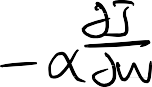 -α ∂J/∂w